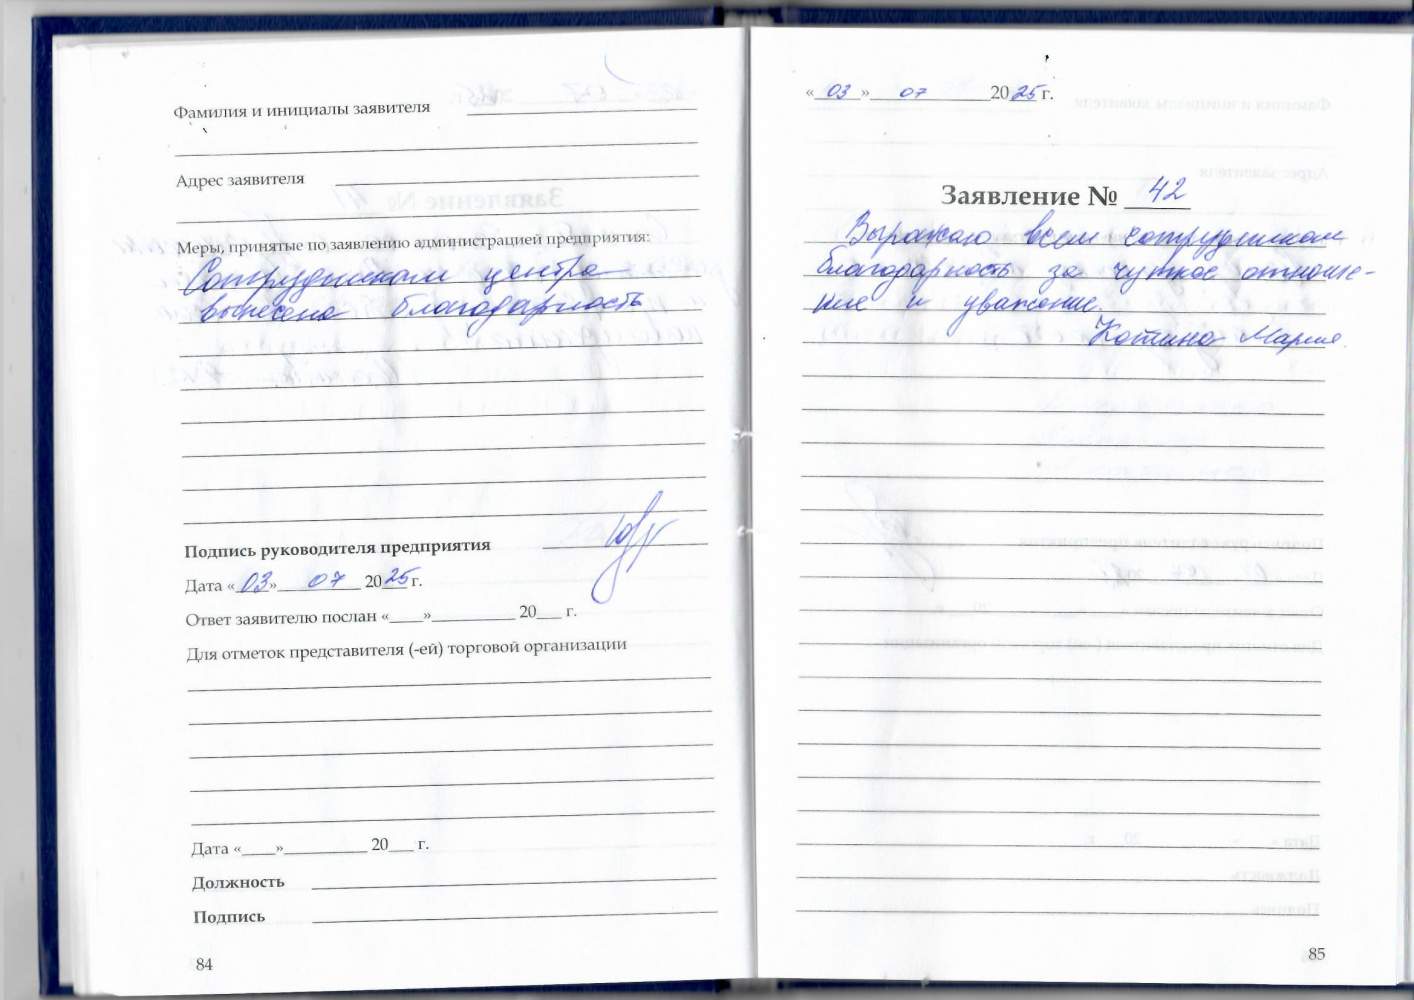 Фамилия и инициалы заявителя
Адрес заявителя
Меры, принятые по заявлению администрацией предприятия:
Сотрудникам центра
вынесена благодарность
Подпись руководителя предприятия
Дата «03» 07 2025 г.
Ответ заявителю послан «____»__________ 20___ г.
Для отметок представителя (-ей) торговой организации
Дата «____»__________ 20___ г.
Должность
Подпись
84
«03» 07 2025 г.
Заявление № 42
Выражаю всем сотрудникам
благодарность за чуткое отноше-
ние и уважение.
Мария.
85